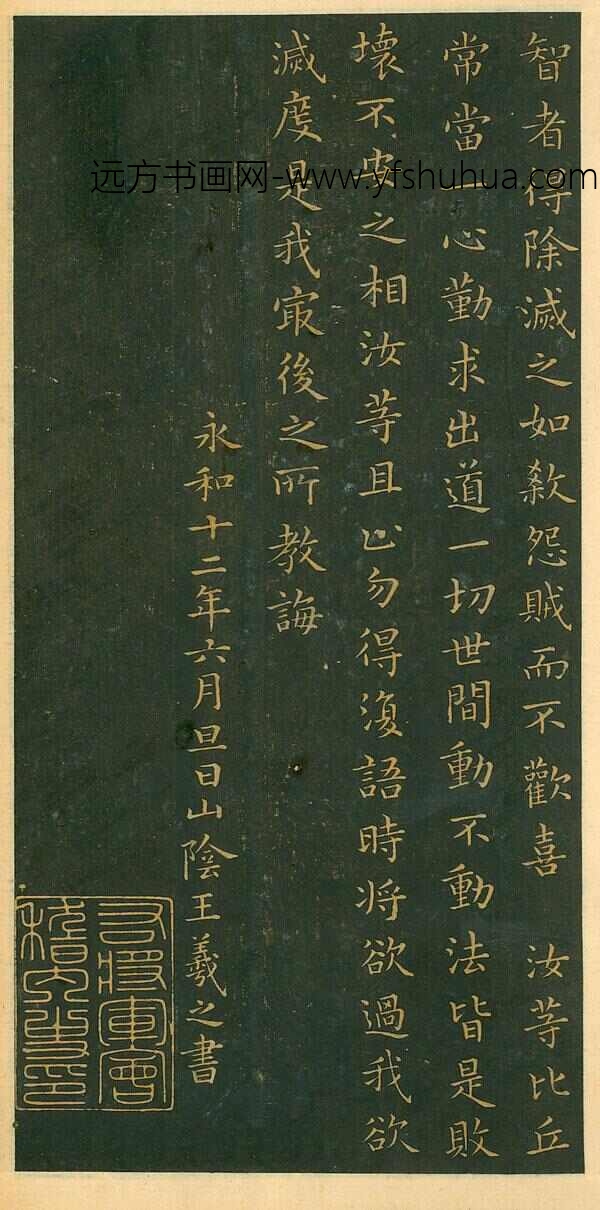 智者得除滅之如殺怨賊而不歡喜 汝等比丘
常當一心勤求出道一切世間動不動法皆是敗
壞不安之相汝等且止勿得復語時将欲過我欲
滅度是我㝡後之所教誨
永和十二年六月旦日山陰王羲之書
右將軍會
稽內史印
远方书画网-www.yfshuhua.com